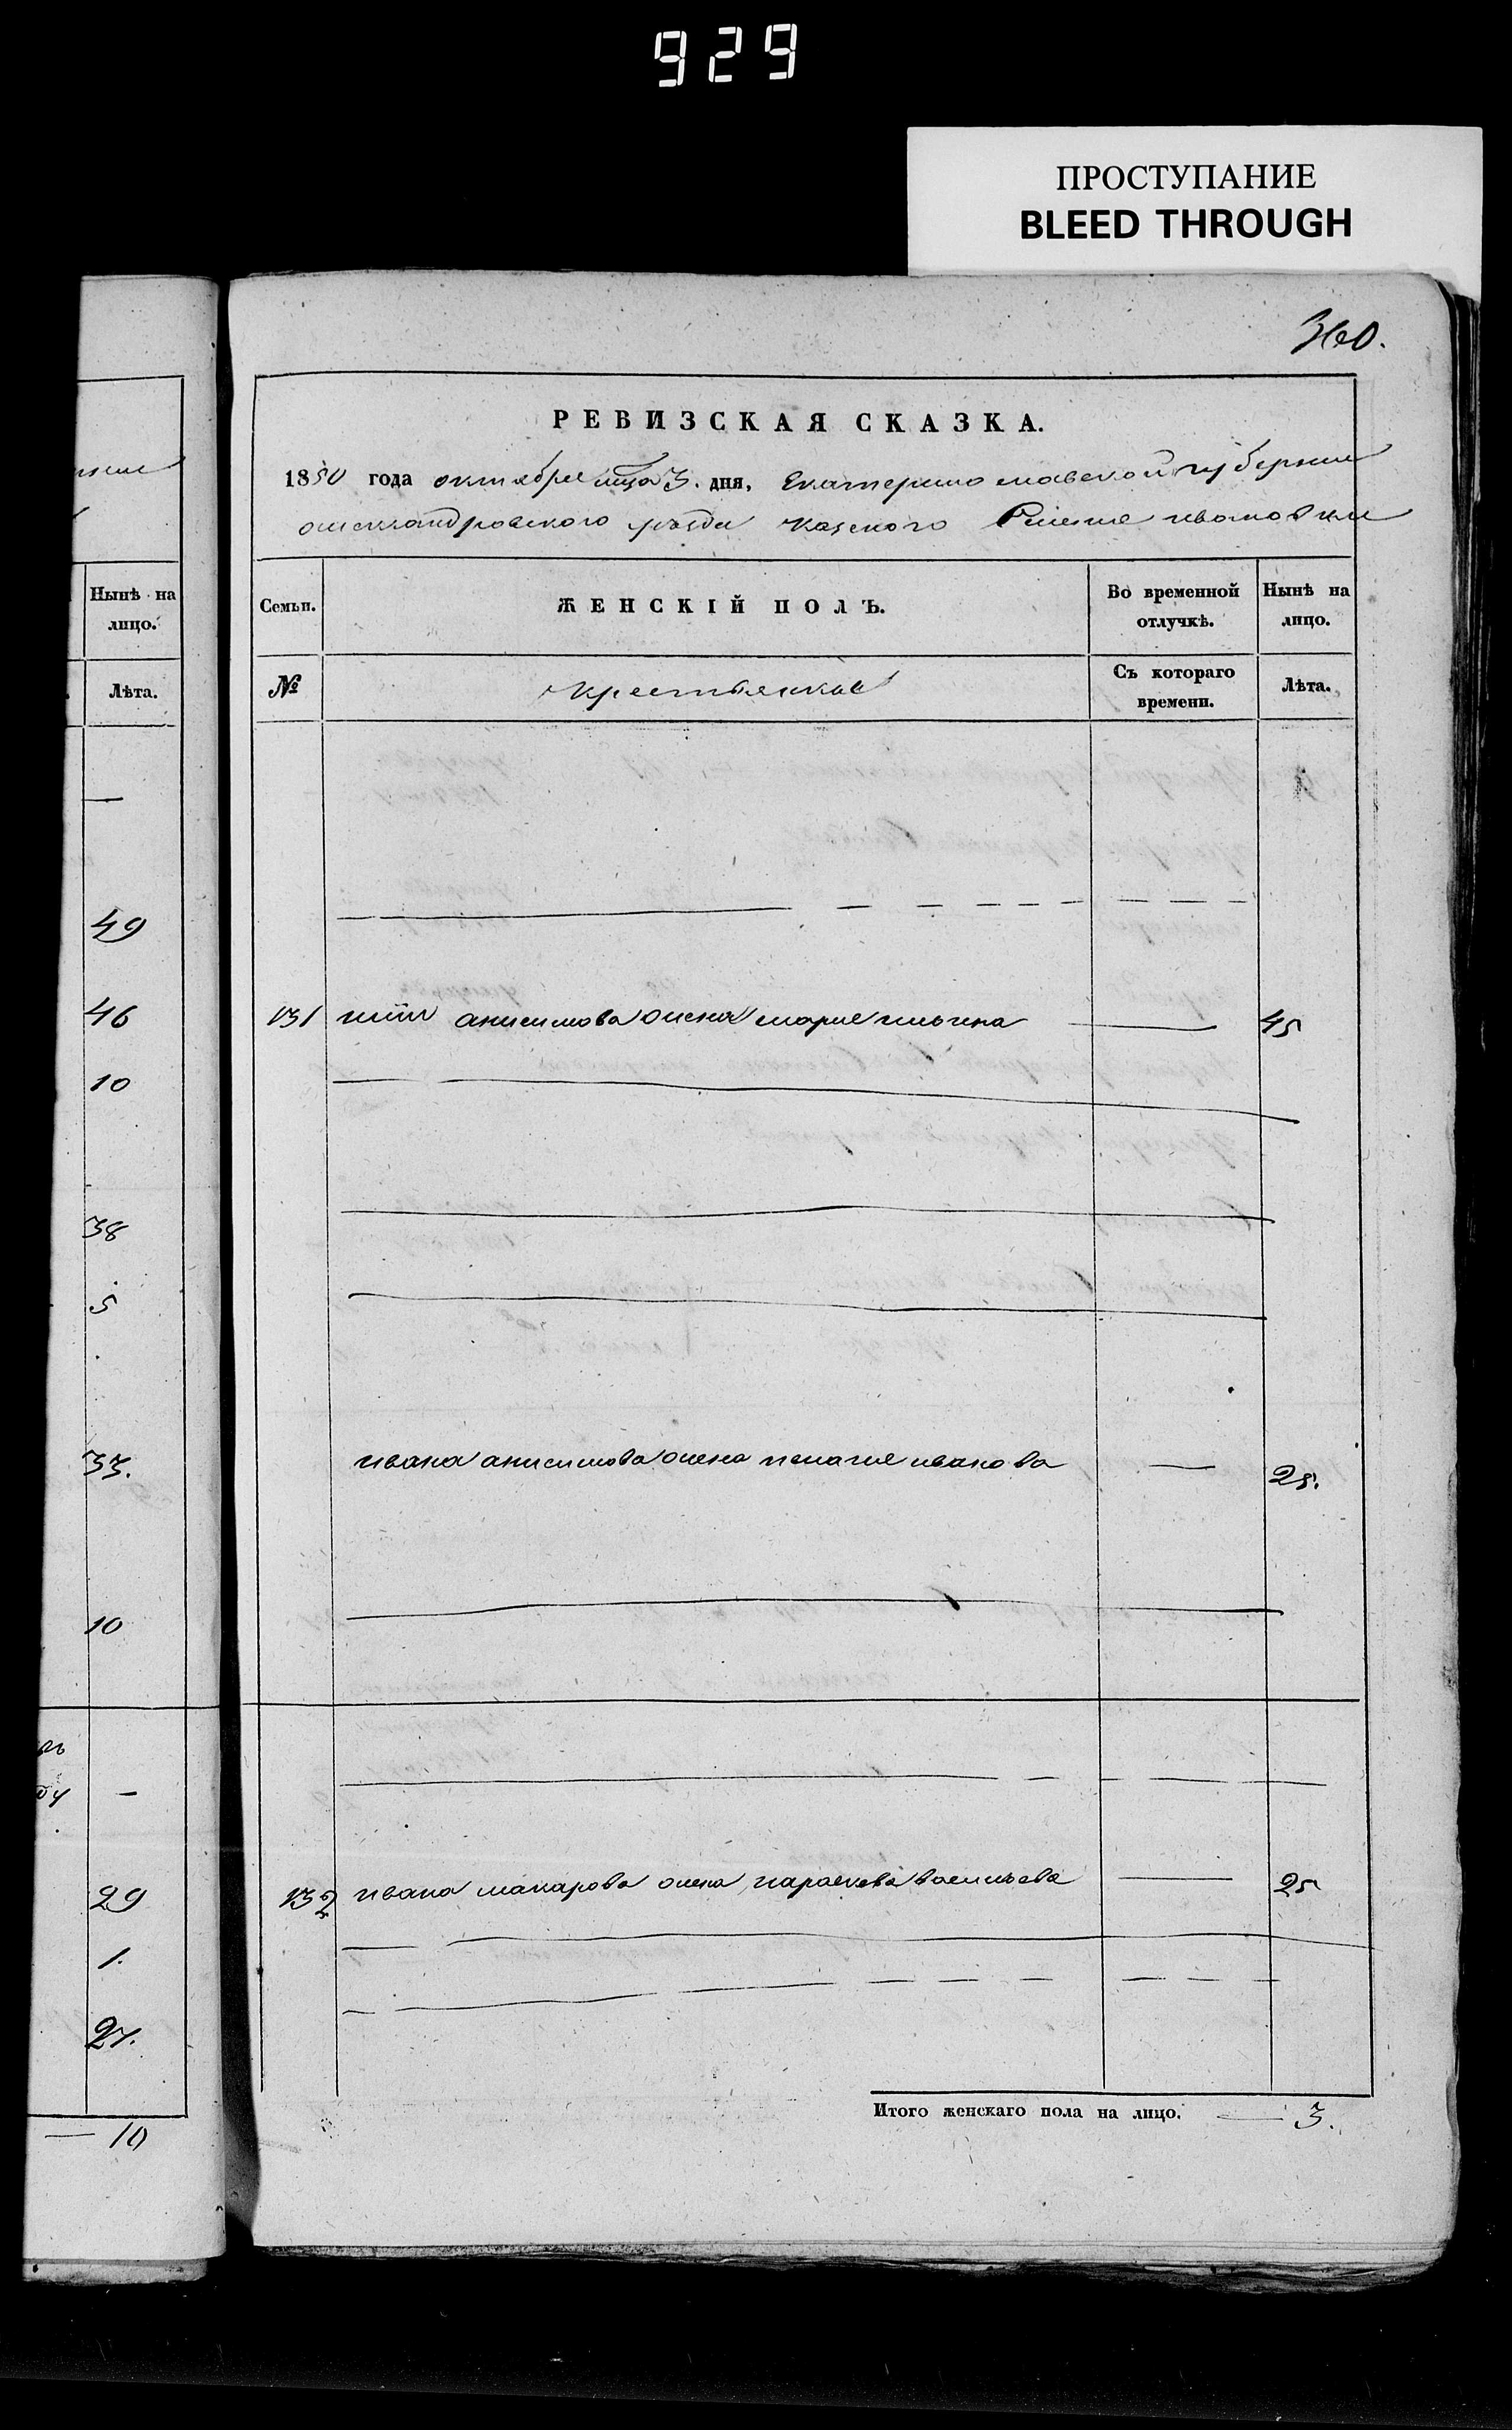 929
ПРОСТУПАНИЕ
BLEED THROUGH
360.
РЕВИЗСКАЯ СКАЗКА.
1850 года октября мца 3. дня, Екатеринославской губернии
александровского уезда казеного Селения ивановки
Нынѣ на лицо.
Лѣта.
—
49
46
10
38
5
33.
10
—
29
1.
27.
— 10
Семьи.
ЖЕНСКІЙ ПОЛЪ.
Во временной отлучкѣ.
Нынѣ на лицо.
№
крестьянка
Съ котораго времени.
Лѣта.
131 анисимова жена марие ильина — 45
ивана анисимова жена пелагие иванова — 25.
132 ивана макарова жена параскева васильева — 25
Итого женскаго пола на лицо. — 3.